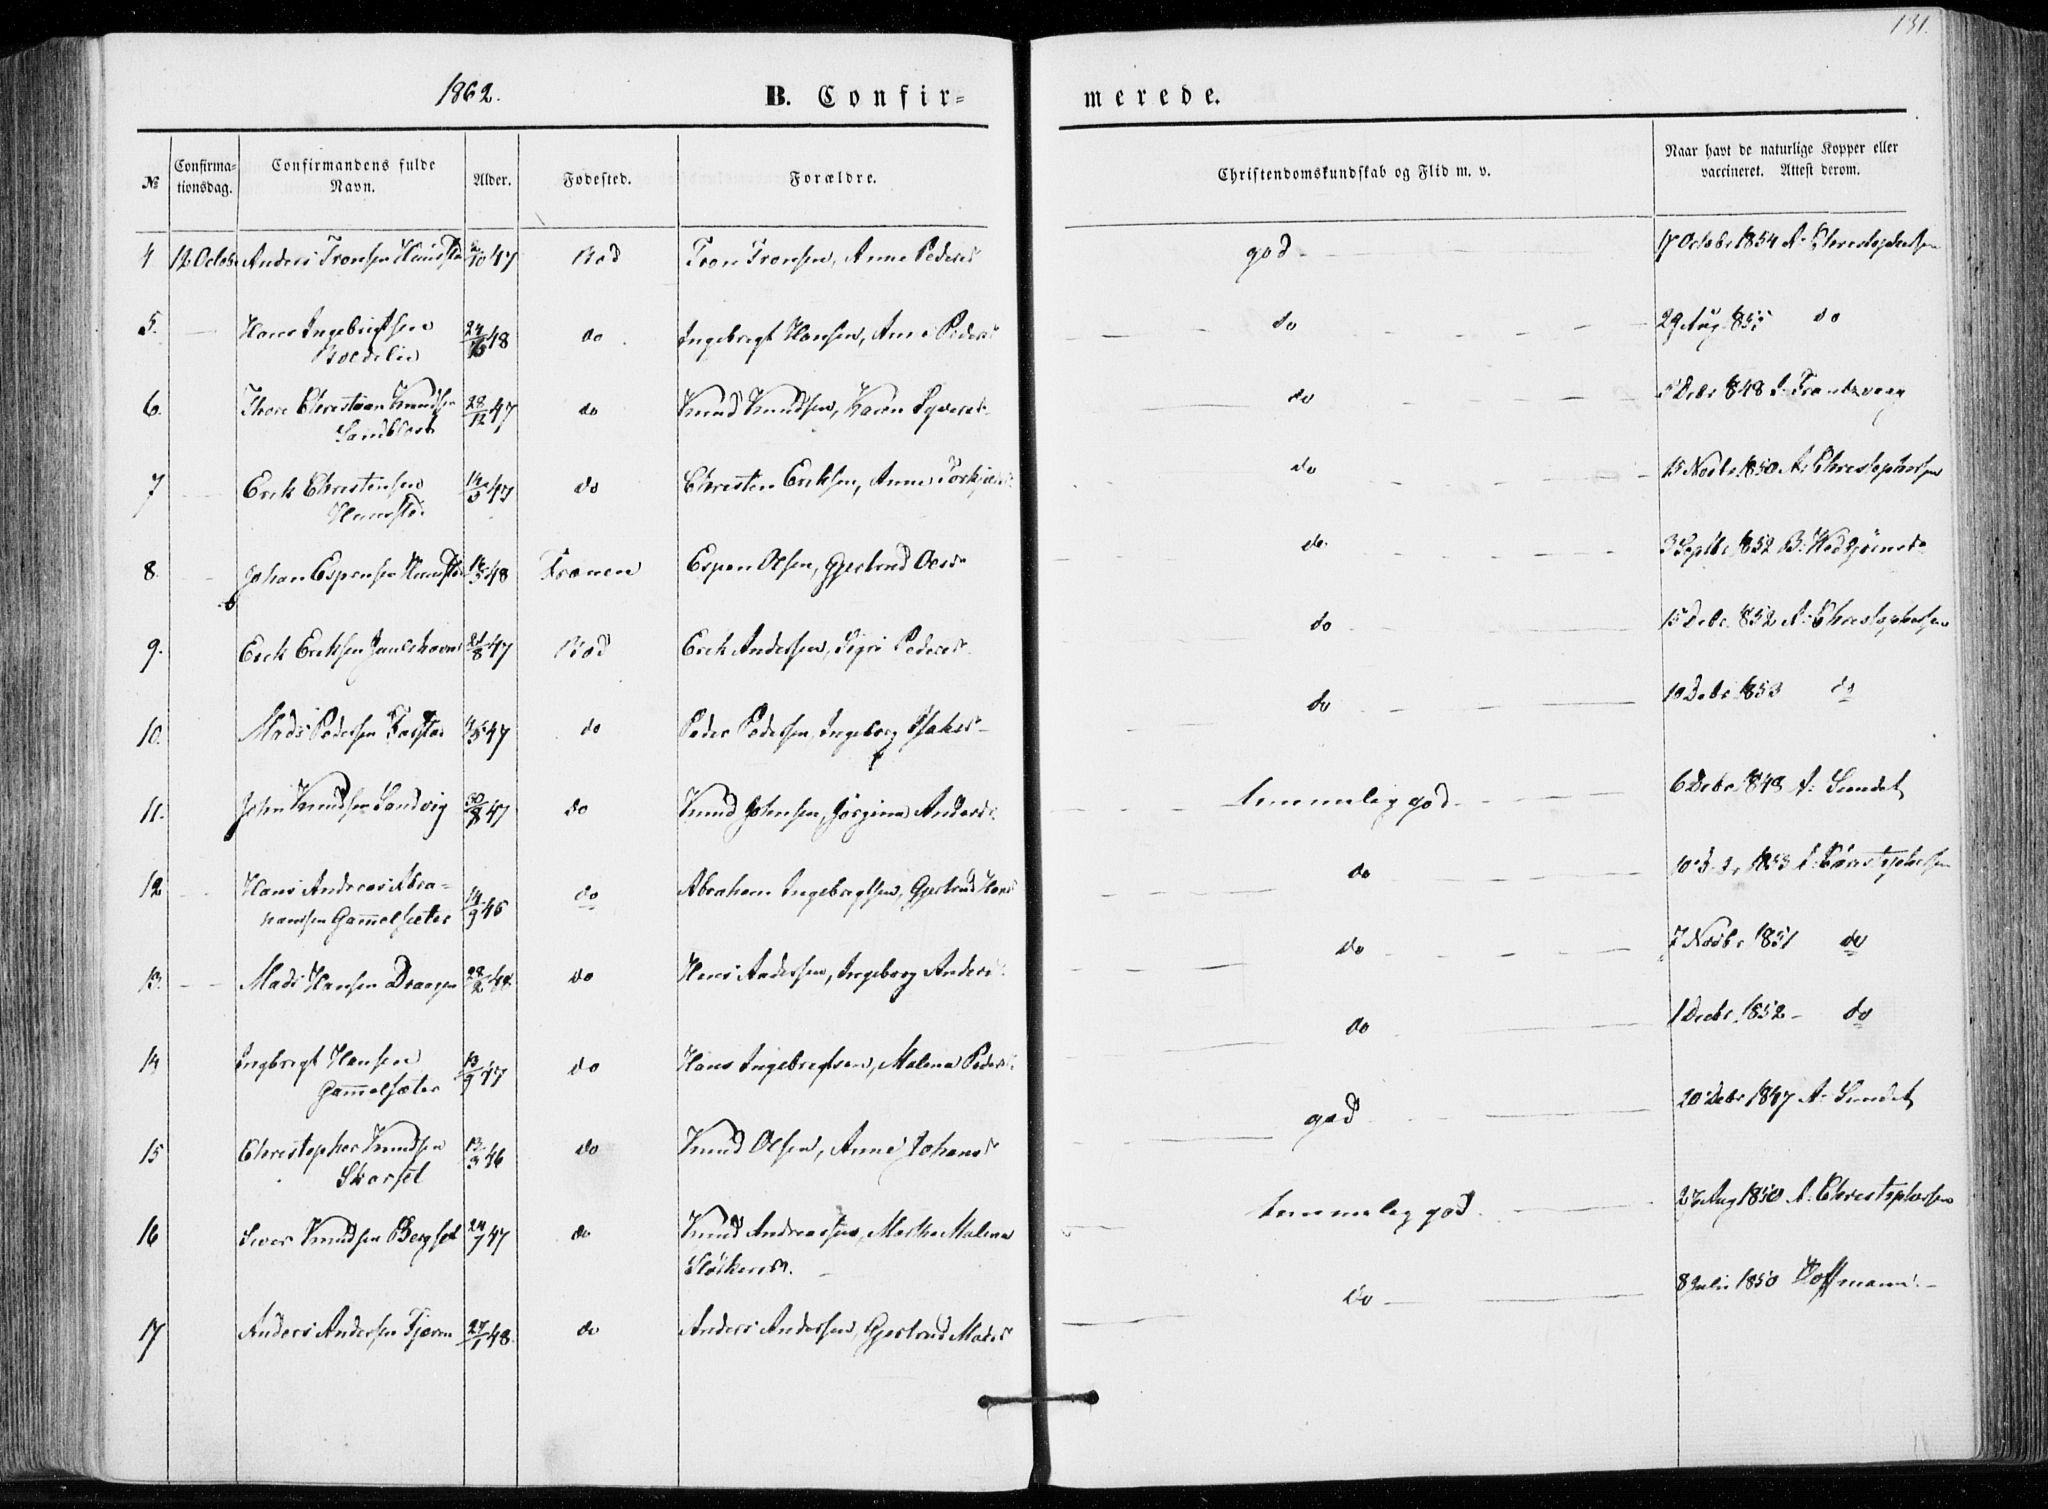 131.
1862. B. Confir= merede.
№ Confirma=tionsdag. Confirmandens fulde Navn. Alder. Fødested. Forældre. Christendomskundskab og Flid m. v. Naar havt de naturlige Kopper eller vaccineret. Attest derom.
4 12 Octob Anders Tronsen 47 Bod Tron Tronsen, Anne Pedersd god 17 Octobr 1854 A. Christophersen
5. Hans Ingebrigtsen 48 do Ingebrigt Hansen, Anne Pedersd do 29 Aug 855 do
6. Thore Christian Knudsen 28/12 47 do Knud Knudsen, Karen Syversd do Debr 848 Frantzvaag
Sandblost
7 Erik Christensen 14/5 47 do Christen Eriksen, Anne do 15 Novbr 1850 A. Christophersen
8. Johan Espensen 48 Frænen Espen Olsen, Gjertrud Olesd do 3 Septbr 852 B.
9. Erik Eriksen 21/8 47 Bod Erik Andersen, Sigri Pedersd do 15 Debr 852 A. Christophersen
10. Mads Pedersen 47 do Peder Pedersen, Ingeborg do 10 Debr 1853 do
11. John Knudsen Sandvig 30/8 47 do Knud Johnsen, Jørgina Andersd temmelig god 6 Debr 848 A. Sundet
12 Hans Andreas Abra-
hamsen Gammelsæter 14/9 46 do Abraham Ingebrigtsen, Gjertrud Hansd do 1853 A. Christophersen
13. Mads Hansen Draagen 28/2 48 do Hans Andersen, Ingeborg Andersd do 7 Novbr 1851 do
14 Ingbrigt Hansen
Gammelsæter 13/9 47 do Hans Ingebrigtsen, Malena Pedersd do 1 Decbr 1852 do
15 Christopher Knudsen
Skarset 13/3 46 do Knud Olsen, Anne Johansd god 20 Debr 1847 A. Sundet
16 Siver Knudsen Bergset 24/7 47 do Knud Andreassen, Marthe Malena temmelig god 27 Aug 1850 A. Christophersen
17 Anders Andersen Tjæren 27/1 48 do Anders Andersen, Gjertrud Madsd do 8 Juli 1850 Hoffmann